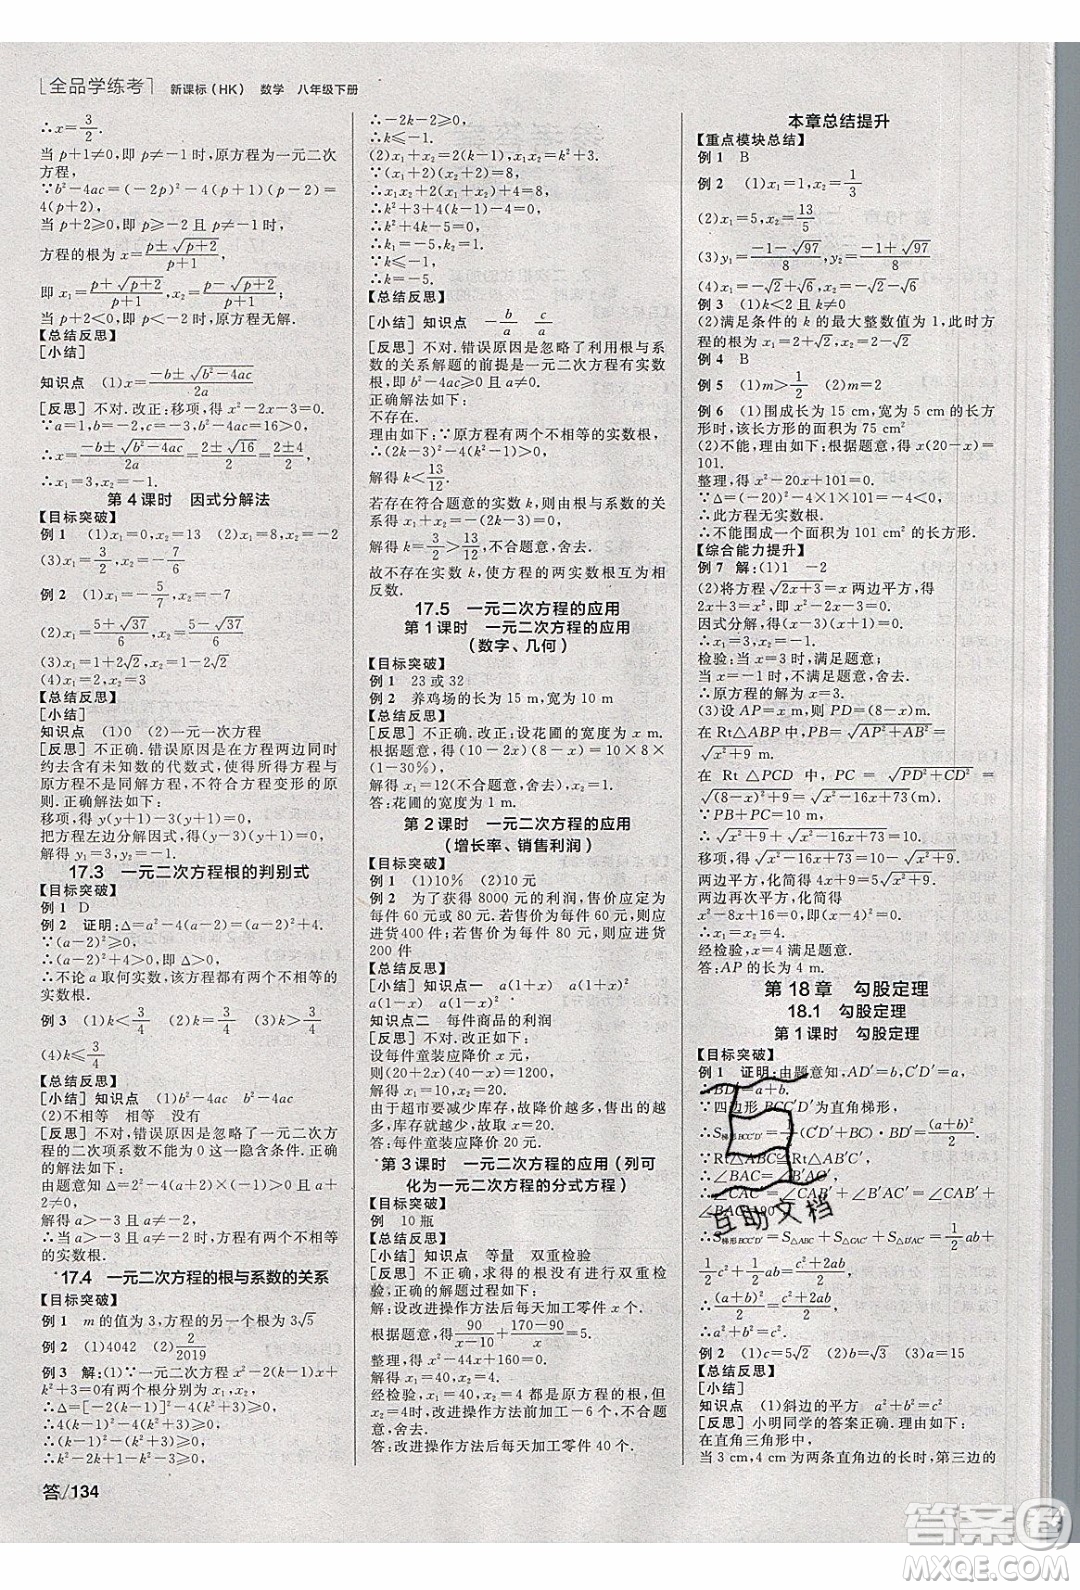 全品学练考 新课标(HK) 数学 八年级下册
∴p=3/2.
当 p+1≠0,即 p≠-1 时,原方程为一元二次
方程,
∵b²-4ac=(-2p)²-4(p+1)(p-2)=4(p+2).
当 p+2≥0,即 p≥-2 且 p≠-1 时,
方程的根为 x=(p±√(p+2))/(p+1),
即 x₁=(p+√(p+2))/(p+1),x₂=(p-√(p+2))/(p+1);
当 p+2<0,即 p<-2 时,原方程无解.
【总结反思】
[小结]
知识点 (1)x=(-b±√(b²-4ac))/2a
[反思] 不对.改正:移项,得 x²-2x-3=0.
∵a=1,b=-2,c=-3,b²-4ac=16>0,
∴x=(-b±√(b²-4ac))/2a=(2±√16)/2=(2±4)/2,
∴x₁=3,x₂=-1.
第4课时 因式分解法
【目标突破】
例1 (1)x₁=0,x₂=12 (2)x₁=8,x₂=-2
(3)x₁=3/2,x₂=-7/6
例2 (1)x₁=-5/7,x₂=-1
(2)x₁=(5+√37)/6,x₂=(5-√37)/6
(3)x₁=1+2√2,x₂=1-2√2
(4)x₁=2,x₂=-1
【总结反思】
[小结]
知识点 (1)0 (2)一元一次方程
[反思] 不正确.错误原因是在方程两边同时
约去含有未知数的代数式,使得所得方程与
原方程不是同解方程,不符合方程变形的原
则.正确解法如下:
移项,得(y-1)(y-2)-(y-1)=0,
把方程左边分解因式,得(y-1)(y-3)=0,
解得 y₁=3,y₂=1.
17.3 一元二次方程根的判别式
例1 D
例2 证明:Δ=a²-4(a-2)=(a-2)²+4.
∵(a-2)²≥0,∴(a-2)²+4>0,即 Δ>0,
∴不论 a 取何实数,该方程都有两个不相等的
实数根.
例3 (1)k<3/4 (2)k=3/4 (3)k>3/4
(4)k≤3/4
【总结反思】
[小结] 知识点 (1)> = <
(2)不相等 相等 没有
[反思] 不对,错误原因是忽略了一元二次方
程的二次项系数不能为0这一隐含条件.正
确的解法如下:
由题意知 Δ=12-4a×(-1)>0 且 a≠0,
解得 a>-3 且 a≠0,
∴当 a>-3 且 a≠0 时,方程有两个不相等
的实数根.
17.4 一元二次方程的根与系数的关系
【目标突破】
例1 m 的值为3,方程的另一个根为3√5
例2 (1)4042 (2)2/2019
例3 解:(1)∵一元二次方程 x²-2(k-1)x+
k²+3=0 有两个实数根分别为 x₁,x₂,
∴Δ=[-2(k-1)]²-4(k²+3)≥0,
∴4(k-1)²-4(k²+3)≥0,
∴4(k-1)²≥4(k²+3),
∴k²-2k+1≥k²+3,
答/134
∴-2k-2≥0,
∴k≤-1.
(2)x₁+x₂=2(k-1),x₁x₂=k²+3.
∵2(x₁+x₂)+x₁x₂=-2,
∴4(k-1)+k²+3+2=0,
∴k²+4k+1=0,
∴k²+4k=-1,
∴k=-1.
【总结反思】
[小结] 知识点 -b/a c/a
[反思] 不对.错误原因是忽略了利用根与系
数的关系解题的前提是一元二次方程有实数根.
正确解法如下:
不存在.
理由如下:∵原方程有两个不相等的实数根,
∴(2k-3)²-4(k-1)(k+1)>0,
解得 k<13/12.
若存在符合题意的实数 k,由根与系数的关系,
解得 k=3/2>13/12,不合题意,舍去.
故不存在实数 k,使方程的两实数根互为相
反数.
17.5 一元二次方程的应用
第1课时 一元二次方程的应用
(数字、几何)
【目标突破】
例1 23 或 32
例2 养鸡场的长为15 m,宽为10 m
例3 解:设花圃的宽度为 x m.
根据题意,得(10-2x)(8-2x)=10×8×
(1-40%),
解得 x₁=1,x₂=8(不合题意,舍去).
答:花圃的宽度为1 m.
第2课时 一元二次方程的应用
(增长率、销售利润)
例1 (1)10% (2)10个
例2 为了获得8000元的利润,售价应定为
每件60元或80元.若售价为每件60元,则
应进货400件;若售价为每件80元,应进货
200件
【总结反思】
[小结] 知识点一 a(1+x) a(1+x)²
a(1-x) a(1-x)²
知识点二 每件商品的利润
[反思] 不对.改正如下:
设每件童装应降价 x 元,
由于超市要减少库存,故降价越多,售出的越
多,库存就越少.
答:每件童装应降价20元.
第3课时 一元二次方程的应用(列可
化为一元二次方程的分式方程)
【目标突破】
例 10瓶
[小结] 知识点 等量 双重检验
[反思] 不正确,求得的根没有进行双重检
验.正确的解题过程如下:
解:设改进操作方法后每天加工零件 x 个.
根据题意,得 90/(x-10)+(170-90)/x=6,
经检验,x₁,x₂ 都是原方程的根,但
x=4时,改进操作方法前加工-6个,不合题意,舍去.
本章总结提升
【重点模块总结】
例1 B
例2 (1)x₁=1,x₂=1/3
(2)x₁=5,x₂=13/5
(3)y₁=(-1-√97)/8,y₂=(-1+√97)/8
(4)x₁=-√2+√6,x₂=-√2-√6
例3 (1)k<2 且 k≠0
(2)满足条件的 k 的最大整数值为1,此时
方程的根为 x₁=-1+√2,x₂=-1-√2
例4 B
例5 (1)m>1/2 (2)m=2
例6 (1)围成长为15 cm,宽为5 cm的长方
形时,该长方形的面积为75 cm²
(2)不能,理由如下:根据题意,得 x(20-x)=
101.
整理,得 x²-20x+101=0.
∵Δ=(-20)²-4×1×101=-4<0,
∴此方程无实数根.
∴不能围成一个面积为101 cm²的长方形.
【综合能力提升】
例7 解:(1)1 -2
(2)将方程√(2x+3)=x 两边平方,得
2x+3=x²,即x²-2x-3=0.
因式分解,得(x-3)(x+1)=0,
∴x₁=3,x₂=-1.
检验:当 x=3 时,满足题意;
当 x=-1 时,不满足题意,舍去.
∴原方程的解为 x=3.
(3)设 AP=x m,则 PD=(8-x)m.
在 Rt△ABP 中,PB=√(AP²+AB²)=
√(x²+9) m.
在 Rt△PCD 中,PC=√(CD²+PD²)=
√((8-x)²+9)=√(x²-16x+73)(m).
∵PB+PC=10,
∴√(x²+9)+√(x²-16x+73)=10.
移项,得√(x²-16x+73)=10-√(x²+9),
两边平方,化简得 5√(x²+9)=4x+9,
两边平方,化简并整理,得
x²-8x+16=0,
∴x=4.
经检验,x=4 满足题意.
答:AP 的长为4 m.
第18章 勾股定理
18.1 勾股定理
第1课时 勾股定理
【目标突破】
例1 证明:由题意知,AD′=b,C′D′=a,
∴BD′=a+b.
∵四边形BCC′D′为直角梯形,
∵Rt△ABC≌Rt△AB′C′,
∴∠BAC=∠B′AC′,
例2 (1)c=5√2 (2)b=2 (3)a=15
【总结反思】
[小结]
知识点 (1)斜边的平方 a²+b²=c²
[反思] 小明同学的答案正确.理由如下:
在直角三角形中,
当3 cm,4 cm为两条直角边的长时,第三边的
互助文档
答案圈
MXQE.COM